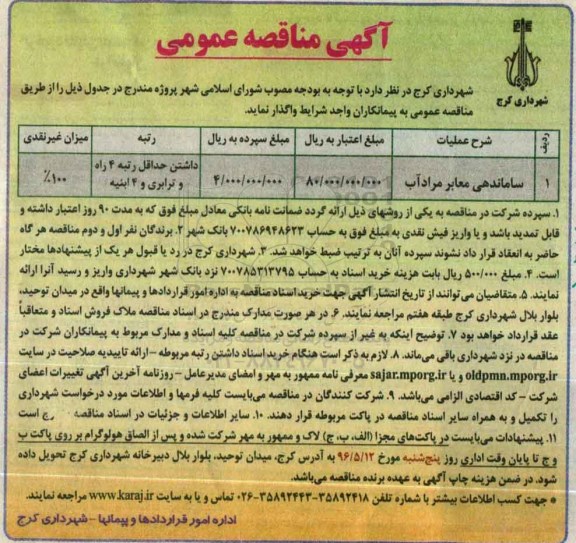 آگهی مناقصه عمومی
شهرداری کرج
شهرداری کرج در نظر دارد با توجه به بودجه مصوب شورای اسلامی شهر پروژه مندرج در جدول ذیل را از طریق
مناقصه عمومی به پیمانکاران واجد شرایط واگذار نماید.
ردیف شرح عملیات مبلغ اعتبار به ریال مبلغ سپرده به ریال رتبه میزان غیرنقدی
۱ ساماندهی معابر مرادآب ۸۰/۰۰۰/۰۰۰/۰۰۰ ۴/۰۰۰/۰۰۰/۰۰۰ داشتن حداقل رتبه ۴ راه و ترابری و ۴ ابنیه ۱۰۰٪
۱. سپرده شرکت در مناقصه به یکی از روشهای ذیل ارائه گردد ضمانت نامه بانکی معادل مبلغ فوق که به مدت ۹۰ روز اعتبار داشته و
قابل تمدید باشد و یا واریز فیش نقدی به مبلغ فوق به حساب ۷۰۰۷۸۶۹۴۸۶۲۳ بانک شهر ۲. برندگان نفر اول و دوم مناقصه هر گاه
حاضر به انعقاد قرار داد نشوند سپرده آنان به ترتیب ضبط خواهد شد. ۳. شهرداری کرج در رد یا قبول هر یک از پیشنهادها مختار
است. ۴. مبلغ ۵۰۰/۰۰۰ ریال بابت هزینه خرید اسناد به حساب ۷۰۰۷۸۵۳۱۳۷۹۵ نزد بانک شهر شهرداری واریز و رسید آنرا ارائه
نمایند. ۵. متقاضیان می‌توانند از تاریخ انتشار آگهی جهت خرید اسناد مناقصه به اداره امور قراردادها و پیمانها واقع در میدان توحید،
بلوار بلال شهرداری کرج طبقه هفتم مراجعه نمایند. ۶. در هر صورت مدارک مندرج در اسناد مناقصه ملاک فروش اسناد و متعاقباً
عقد قرارداد خواهد بود. ۷. توضیح اینکه به غیر از سپرده شرکت در مناقصه کلیه اسناد و مدارک مربوط به پیمانکاران شرکت در
مناقصه در نزد شهرداری باقی می‌ماند. ۸. لازم به ذکر است هنگام خرید اسناد داشتن رتبه مربوطه – ارائه تاییدیه صلاحیت در سایت
oldpmn.mporg.ir و یا sajar.mporg.ir معرفی نامه ممهور به مهر و امضای مدیرعامل – روزنامه آخرین آگهی تغییرات اعضای
شرکت – کد اقتصادی الزامی می‌باشد. ۹. شرکت کنندگان در مناقصه می‌بایست کلیه فرمها و اطلاعات مورد درخواست شهرداری
را تکمیل و به همراه سایر اسناد مناقصه در پاکت مربوطه قرار دهند. ۱۰. سایر اطلاعات و جزئیات در اسناد مناقصه است
۱۱. پیشنهادات می‌بایست در پاکت‌های مجزا (الف، ب، ج) لاک و ممهور به مهر شرکت شده و پس از الصاق هولوگرام بر روی پاکت ب
و ج تا پایان وقت اداری روز پنج‌شنبه مورخ ۹۶/۵/۱۲ به آدرس کرج، میدان توحید، بلوار بلال دبیرخانه شهرداری کرج تحویل داده
شود. در ضمن هزینه چاپ آگهی به عهده برنده مناقصه می‌باشد.
* جهت کسب اطلاعات بیشتر با شماره تلفن ۳۵۸۹۲۴۱۸-۳۵۸۹۲۴۴۳-۰۲۶ تماس و یا به سایت www.karaj.ir مراجعه نمایند.
اداره امور قراردادها و پیمانها – شهرداری کرج